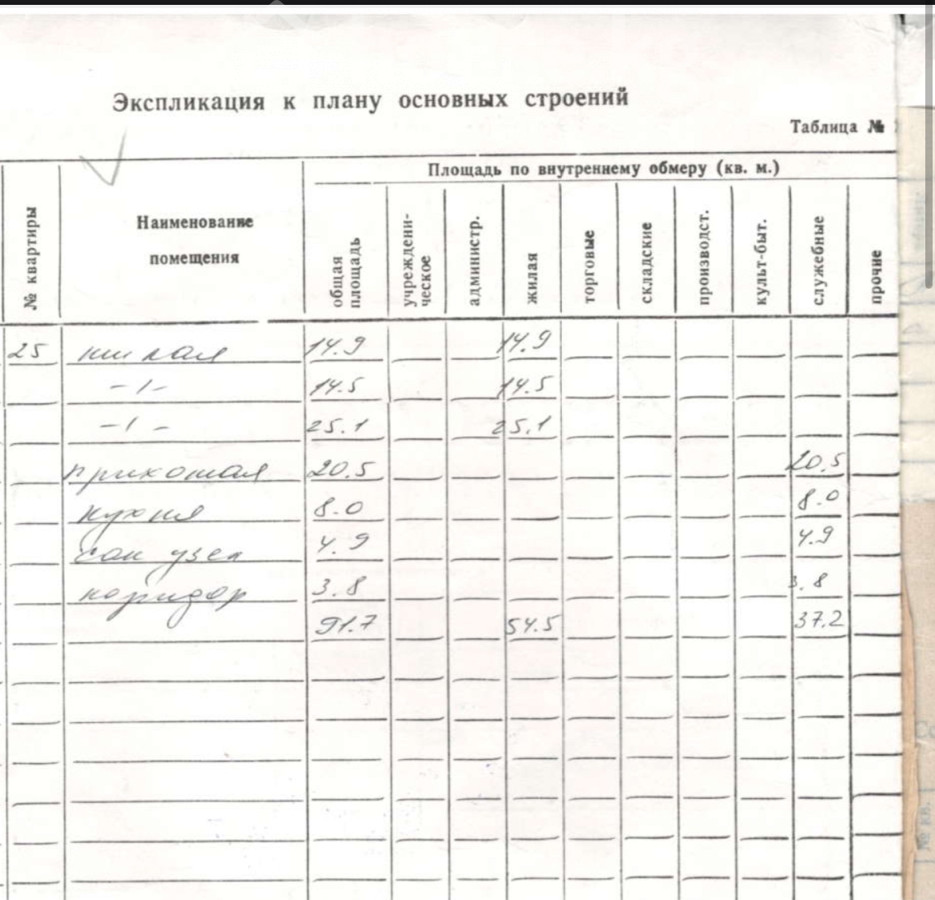 Экспликация к плану основных строений
Таблица №
Площадь по внутреннему обмеру (кв. м.)
№ квартиры
Наименование помещения
общая площадь
учрежденическое
администр.
жилая
торговые
складские
производст.
культ-быт.
служебные
прочие
25 жилая 14.9 14.9
-1- 14.5 14.5
-1- 25.1 25.1
прихожая 20.5 20.5
кухня 8.0 8.0
сан узел 4.9 4.9
коридор 3.8 3.8
91.7 54.5 37.2